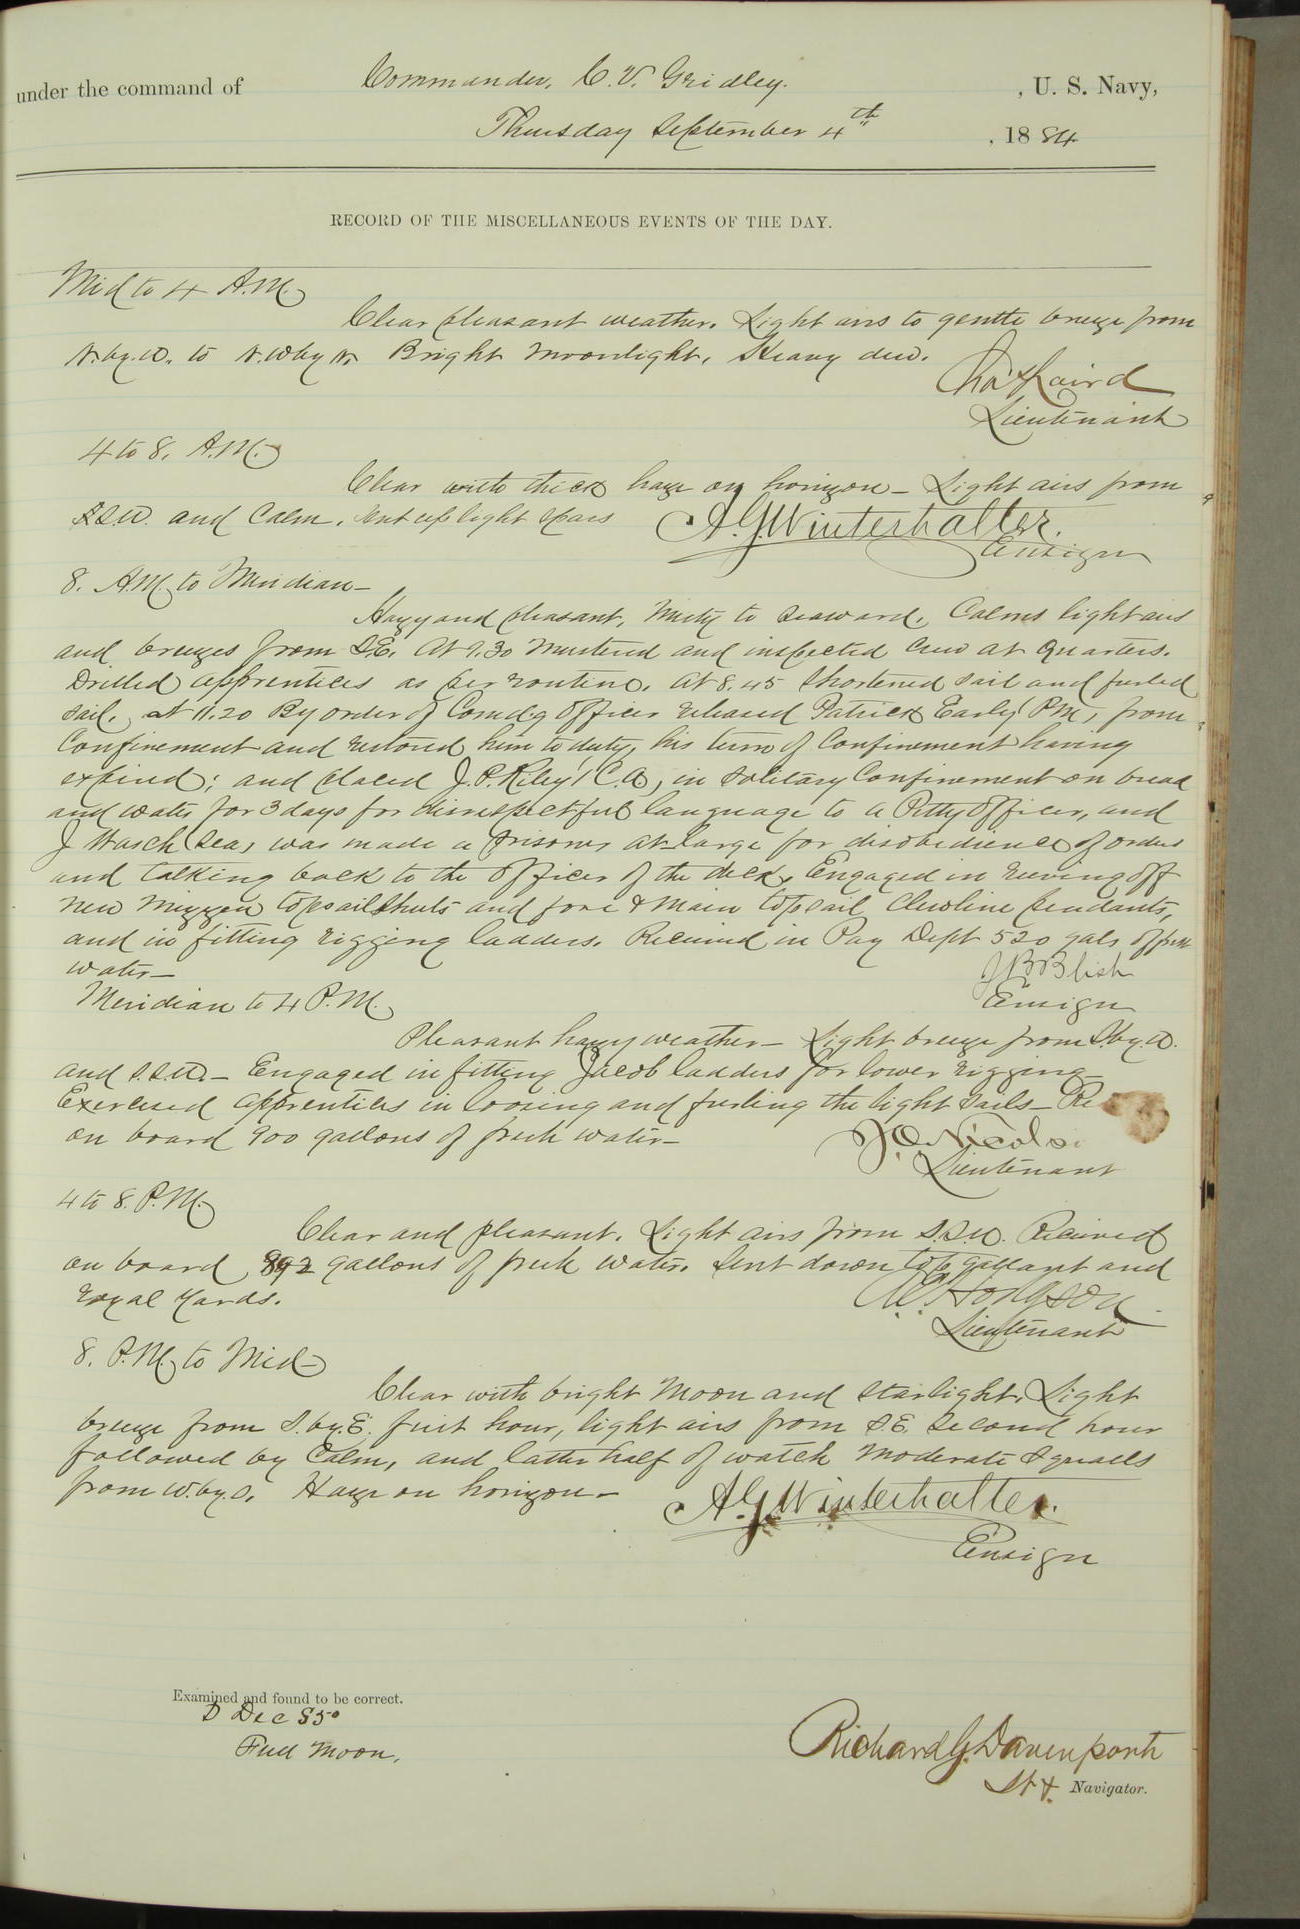 under the command of Commander, C. V. Gridley. , U. S. Navy,
Thursday September 4th , 1884
RECORD OF THE MISCELLANEOUS EVENTS OF THE DAY.
Mid to 4 A.M.
Clear pleasant weather. Light airs to gentle breeze from
N.by.W. to N.W by N. Bright moonlight. Heavy dew.
Chas Laird
Lieutenant
4 to 8. A.M.
Clear with thick haze on horizon – Light airs from
S.S.W. and Calm. Sent up light spars
A.G. Winterhalter.
Ensign
8. A.M. to Meridian –
Hazy and pleasant, Misty to seaward. Calms light airs
and breezes from S.E. At 9.30 Mustered and inspected crew at Quarters.
Drilled apprentices as per routine. At 8.45 Shortened sail and furled
sail. at 11.20 By order of Comd'g Officer released Patrick Early (P.M.) from
Confinement and restored him to duty, his term of Confinement having
expired; and placed J. P. Riley (C.A), in Solitary Confinement on bread
and water for 3 days for disrespectful language to a Petty Officer, and
J (Sea) was made a prisoner at large for disobedience of orders
and talking back to the Officer of the deck. Engaged in reeving off
new mizzen topsail sheets and fore & main topsail Clewline pendants,
and in fitting rigging ladders. Received in Pay Dept 520 gals of fresh
water –
J B Blish
Ensign
Meridian to 4 P.M.
Pleasant hazy weather – Light breeze from S.by.W.
and S.S.W. – Engaged in fitting Jacob ladders for lower rigging –
Exercised apprentices in loosing and furling the light sails – Re
on board 900 gallons of fresh water –
J.O. Nicols
Lieutenant
4 to 8. P.M.
Clear and pleasant. Light airs from S.S.W. Received
on board 892 gallons of fresh water. Sent down top gallant and
royal yards.
Hodgson
Lieutenant
8. P.M. to Mid –
Clear with bright Moon and starlight. Light
breeze from S.by.E. first hour, light airs from S.E. second hour
followed by Calm, and latter half of watch moderate squalls
from W.by.S. Haze on horizon –
A.G. Winterhalter.
Ensign
Examined and found to be correct.
D Dec 85°
Full Moon.
Richard G. Davenport
Lt & Navigator.